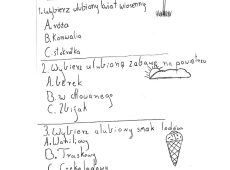 1. Wybierz ulubiony kwiat wiosenny
A. róża
B. Konwalia
C. stokrotka
2. Wybierz ulubioną zabawę na powietrzu
A. berek
B. w chowanego
C. Zbijak
3. Wybierz ulubiony smak lodów
A. Waniliowy
B. Truskawy
C. Czekoladowy